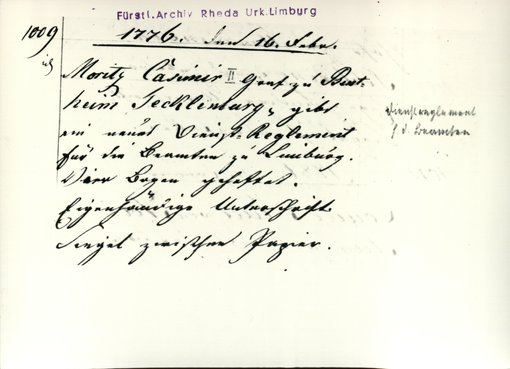 Fürstl. Archiv Rheda Urk. Limburg
1009
1776. den 16. Febr.
Moritz Casimir II Graf zu Bent-
heim Tecklinburg, gibt
ein neues Dienst-Reglement
für die Beamten zu Limburg.
Vier Bogen geheftet.
Eigenhändige Unterschrift
Siegel zwischen Papier.
Dienstreglement
f. d. Beamten